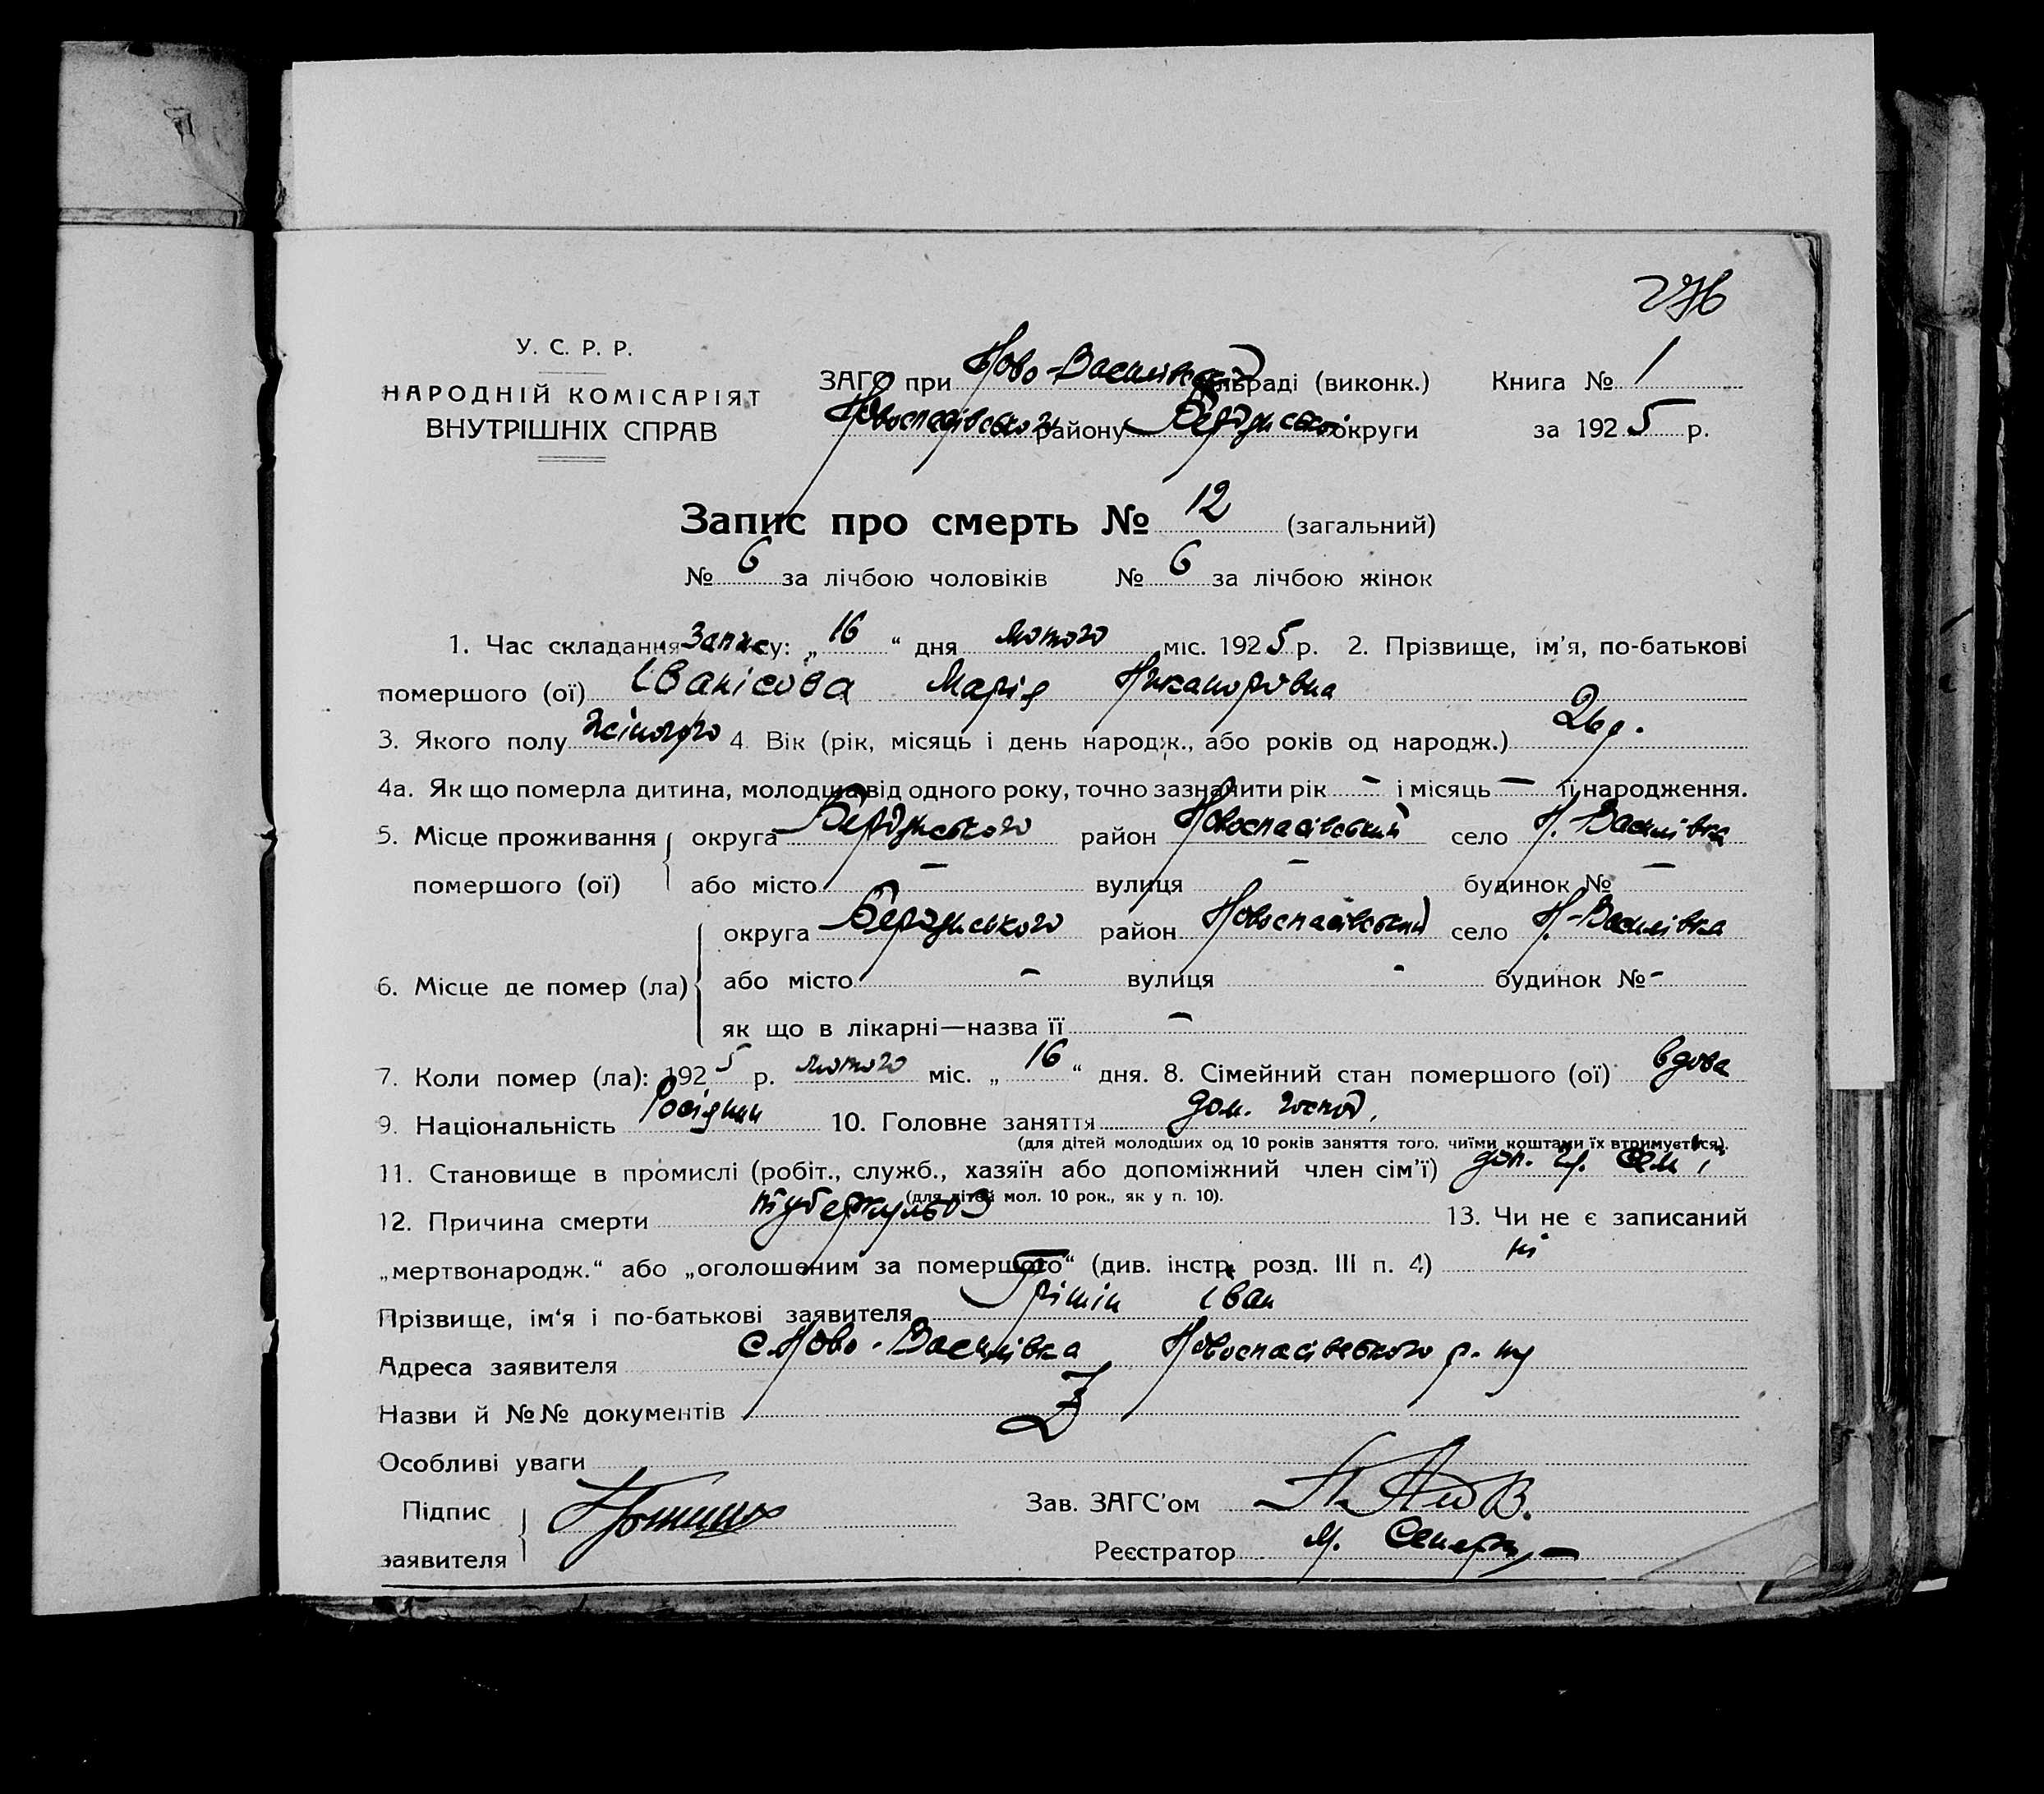 276
У. С. Р. Р.
НАРОДНІЙ КОМІСАРІЯТ
ВНУТРІШНІХ СПРАВ
ЗАГС при Ново-Василівській сільраді (виконк.)
Новоспасівського району Бердянської округи
Книга № 1
за 1925 р.
Запис про смерть № 12 (загальний)
№ 6 за лічбою чоловіків № 6 за лічбою жінок
1. Час складання запису: „16“ дня лютого міс. 1925 р. 2. Прізвище, ім'я, по-батькові
помершого (ої) Іванісова Марія Никаноровна
3. Якого полу жіночого 4. Вік (рік, місяць і день народж., або років од народж.) 26 р.
4а. Як що померла дитина, молодша від одного року, точно зазначити рік – і місяць – її народження.
5. Місце проживання округа Бердянського район Новоспасівський село Н. Василівка
помершого (ої) або місто – вулиця – будинок № –
округа Бердянського район Новоспасівський село Н-Василівка
6. Місце де помер (ла) або місто – вулиця - будинок № -
як що в лікарні—назва її –
7. Коли помер (ла): 1925 р. лютого міс. „16“ дня. 8. Сімейний стан помершого (ої) вдова
9. Національність Росіянин 10. Головне заняття дом. господ.
(для дітей молодших од 10 років заняття того, чиїми коштами їх втримується).
11. Становище в промислі (робіт., служб., хазяїн або допоміжний член сім'ї) доп. чл. сем'ї
(для дітей мол. 10 рок., як у п. 10).
12. Причина смерти туберкульоз 13. Чи не є записаний
„мертвонародж.“ або „оголошеним за помершого“ (див. інстр. розд. III п. 4) ні
Прізвище, ім'я і по-батькові заявителя Грішин Іван
Адреса заявителя с. Ново-Василівка Новоспасівського р-ну
Назви й №№ документів
Особливі уваги
Підпис
заявителя
Зав. ЗАГС'ом
Реєстратор М.